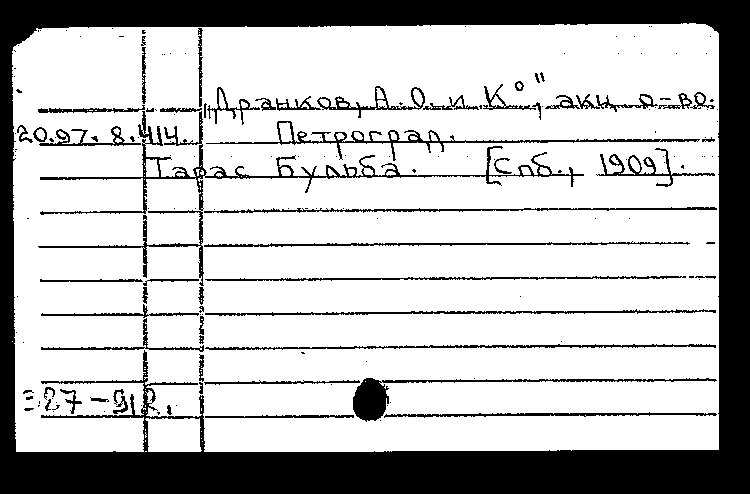 "Дранков, А.О. и К°", акц. о-во.
20.97.8.414. Петроград.
Тарас Бульба. [Спб., 1909].
Э27-912.